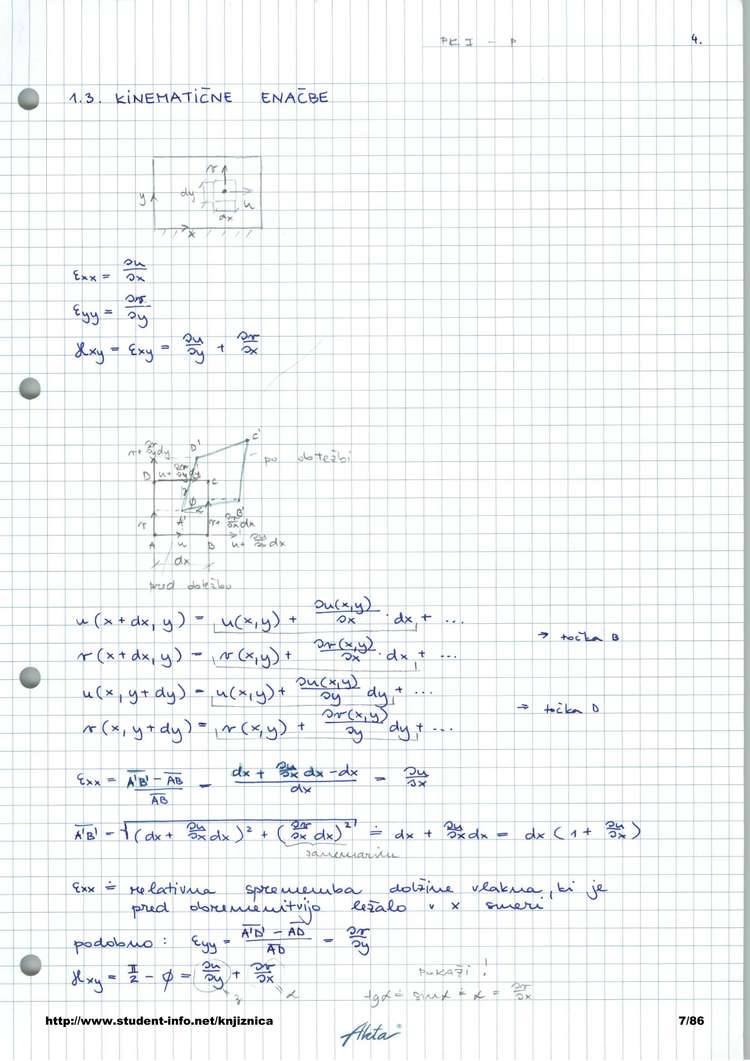 PK I - P
4.
1.3. KINEMATIČNE ENAČBE
v
dy
y
u
dx
x
εxx = ∂u/∂x
εyy = ∂v/∂y
γxy = εxy = ∂u/∂y + ∂v/∂x
D'
C'
v + ∂v/∂y dy
po obtežbi
D
u + ∂u/∂y dy
C
φ
α
v
A'
B'
v + ∂v/∂x dx
A
u
B
u + ∂u/∂x dx
dx
pred obtežbo
u(x+dx, y) = u(x,y) + ∂u(x,y)/∂x · dx + ...
→ točka B
v(x+dx, y) = v(x,y) + ∂v(x,y)/∂x · dx + ...
u(x, y+dy) = u(x,y) + ∂u(x,y)/∂y dy + ...
→ točka D
v(x, y+dy) = v(x,y) + ∂v(x,y)/∂y dy + ...
εxx = (A'B' - AB)/AB = (dx + ∂u/∂x dx - dx)/dx = ∂u/∂x
A'B' = √((dx + ∂u/∂x dx)² + (∂v/∂x dx)²) ≐ dx + ∂u/∂x dx = dx (1 + ∂u/∂x)
zanemarimo
εxx ≐ relativna sprememba dolžine vlakna, ki je
pred obremenitvijo ležalo v x smeri
podobno: εyy = (A'D' - AD)/AD = ∂v/∂y
γxy = π/2 - φ = ∂u/∂y + ∂v/∂x
α
POKAŽI!
tgα ≐ sinα ≐ α = ∂v/∂x
http://www.student-info.net/knjiznica
7/86
Akta